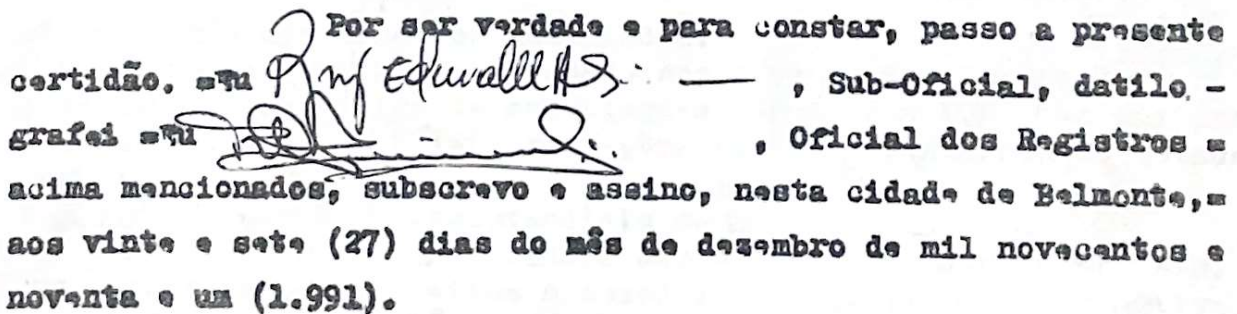 Por ser verdade e para constar, passo a presente
certidão. eu , Sub-Oficial, datilo. -
grafei eu , Oficial dos Registros =
acima mencionados, subscrevo e assino, nesta cidade de Belmonte,=
aos vinte e sete (27) dias do mês de dezembro de mil novecentos e
noventa e um (1.991).